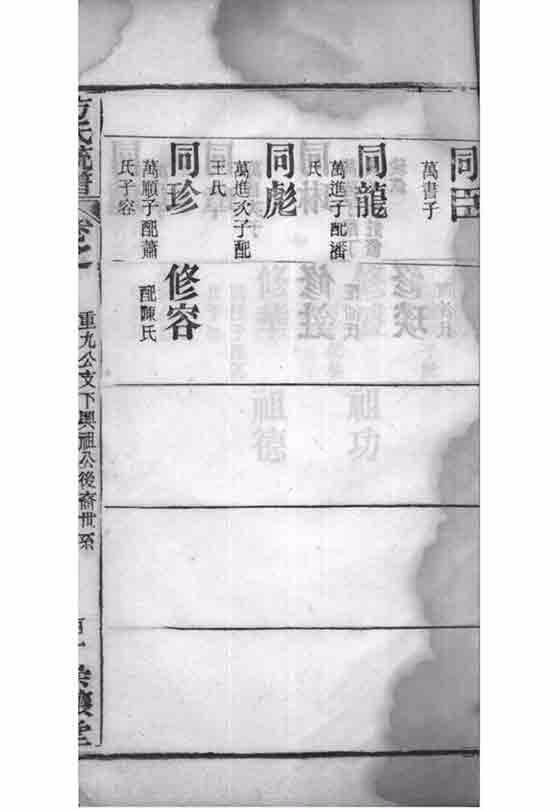 同臣
萬書子
同龍
萬進子配潘
氏
同彪
萬進次子配
王氏
同珍
萬順子配蕭
氏子容
修容
配陳氏
方氏統譜
卷之
重九公文下興祖公後裔世系